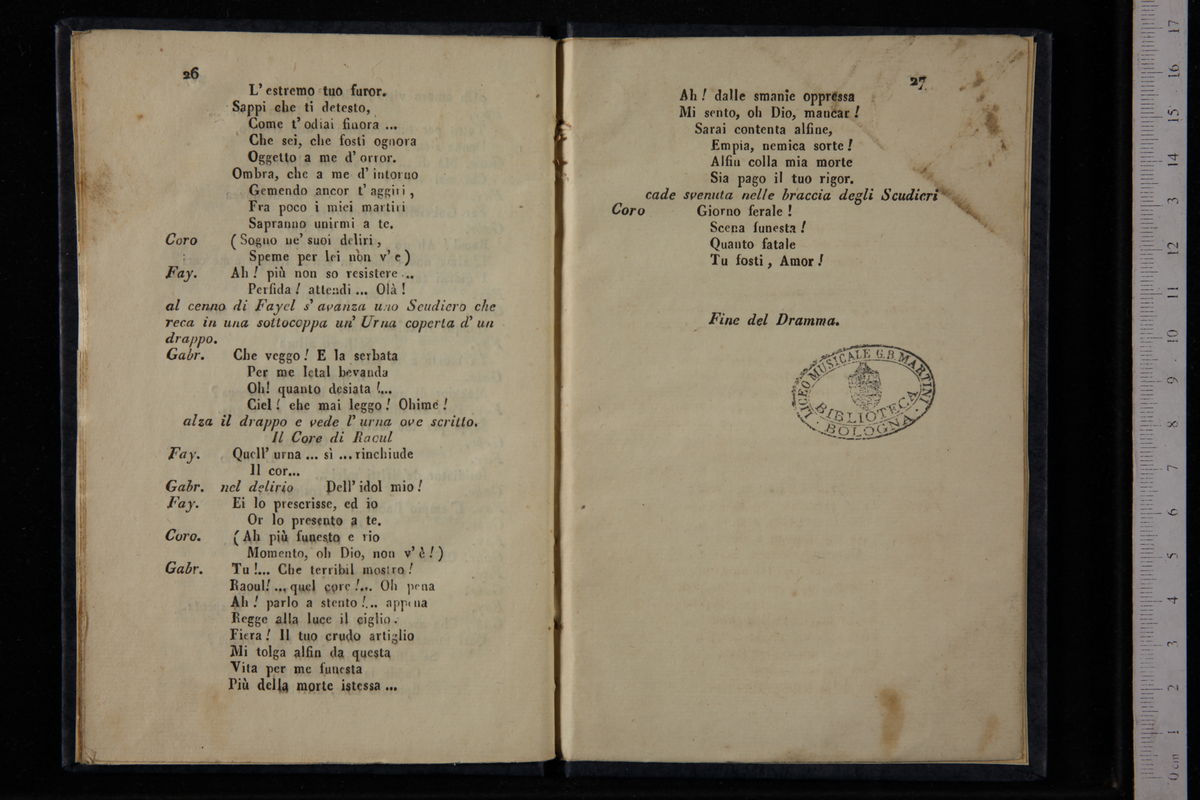 26
L' estremo tuo furor.
Sappi che ti detesto,
Come t' odiai finora ...
Che sei, che fosti ognora
Oggetto a me d' orror.
Ombra, che a me d' intorno
Gemendo ancor t' aggiri ,
Fra poco i miei martiri
Sapranno unirmi a te.
Coro ( Sogno ne' suoi deliri ,
Speme per lei non v' e )
Fay. Ah ! più non so resistere ...
Perfida ! attendi ... Olà !
al cenno di Fayel s' avanza uno Scudiero che
reca in una sottocoppa un' Urna coperta d' un
drappo.
Gabr. Che veggo ! E la serbata
Per me letal bevanda
Oh! quanto desiata !...
Ciel ! che mai leggo ! Ohimè !
alza il drappo e vede l' urna ove scritto.
Il Core di Raoul
Fay. Quell' urna ... sì ... rinchiude
Il cor...
Gabr. nel delirio Dell' idol mio !
Fay. Ei lo prescrisse, ed io
Or lo presento a te.
Coro. ( Ah più funesto e rio
Momento, oh Dio, non v' è ! )
Gabr. Tu !... Che terribil mostro !
Raoul! ... quel core !... Oh pena
Ah ! parlo a stento !... appena
Regge alla luce il ciglio .
Fiera ! Il tuo crudo artiglio
Mi tolga alfin da questa
Vita per me funesta
Più della morte istessa ...
27
Ah ! dalle smanie oppressa
Mi sento, oh Dio, mancar !
Sarai contenta alfine,
Empia, nemica sorte !
Alfin colla mia morte
Sia pago il tuo rigor.
cade svenuta nelle braccia degli Scudieri
Coro Giorno ferale !
Scena funesta !
Quanto fatale
Tu fosti , Amor !
Fine del Dramma.
LICEO MUSICALE G. B. MARTINI
BIBLIOTECA
BOLOGNA
0 cm 1 2 3 4 5 6 7 8 9 10 11 12 13 14 15 16 17